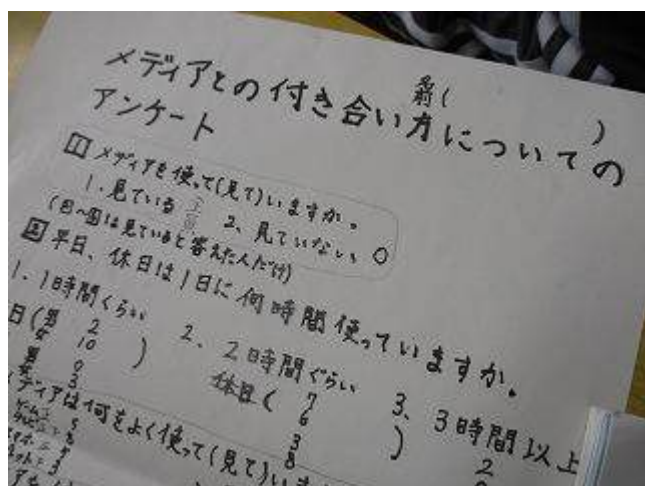 名前(　　　　)
メディアとの付き合い方についての
アンケート
1 メディアを使って(見て)いますか。
1. 見ている 2、見ていない 0
は見ていると答えた人だけ)
平日、休日は1日に何時間使っていますか。
1. 1時間くらい 2、2時間ぐらい 3、3時間以上
日(男 2 休日( 7 2
女 10 ) 6 )
男 0 3
女 3 8
メディアは何をよく使って(見て)いま